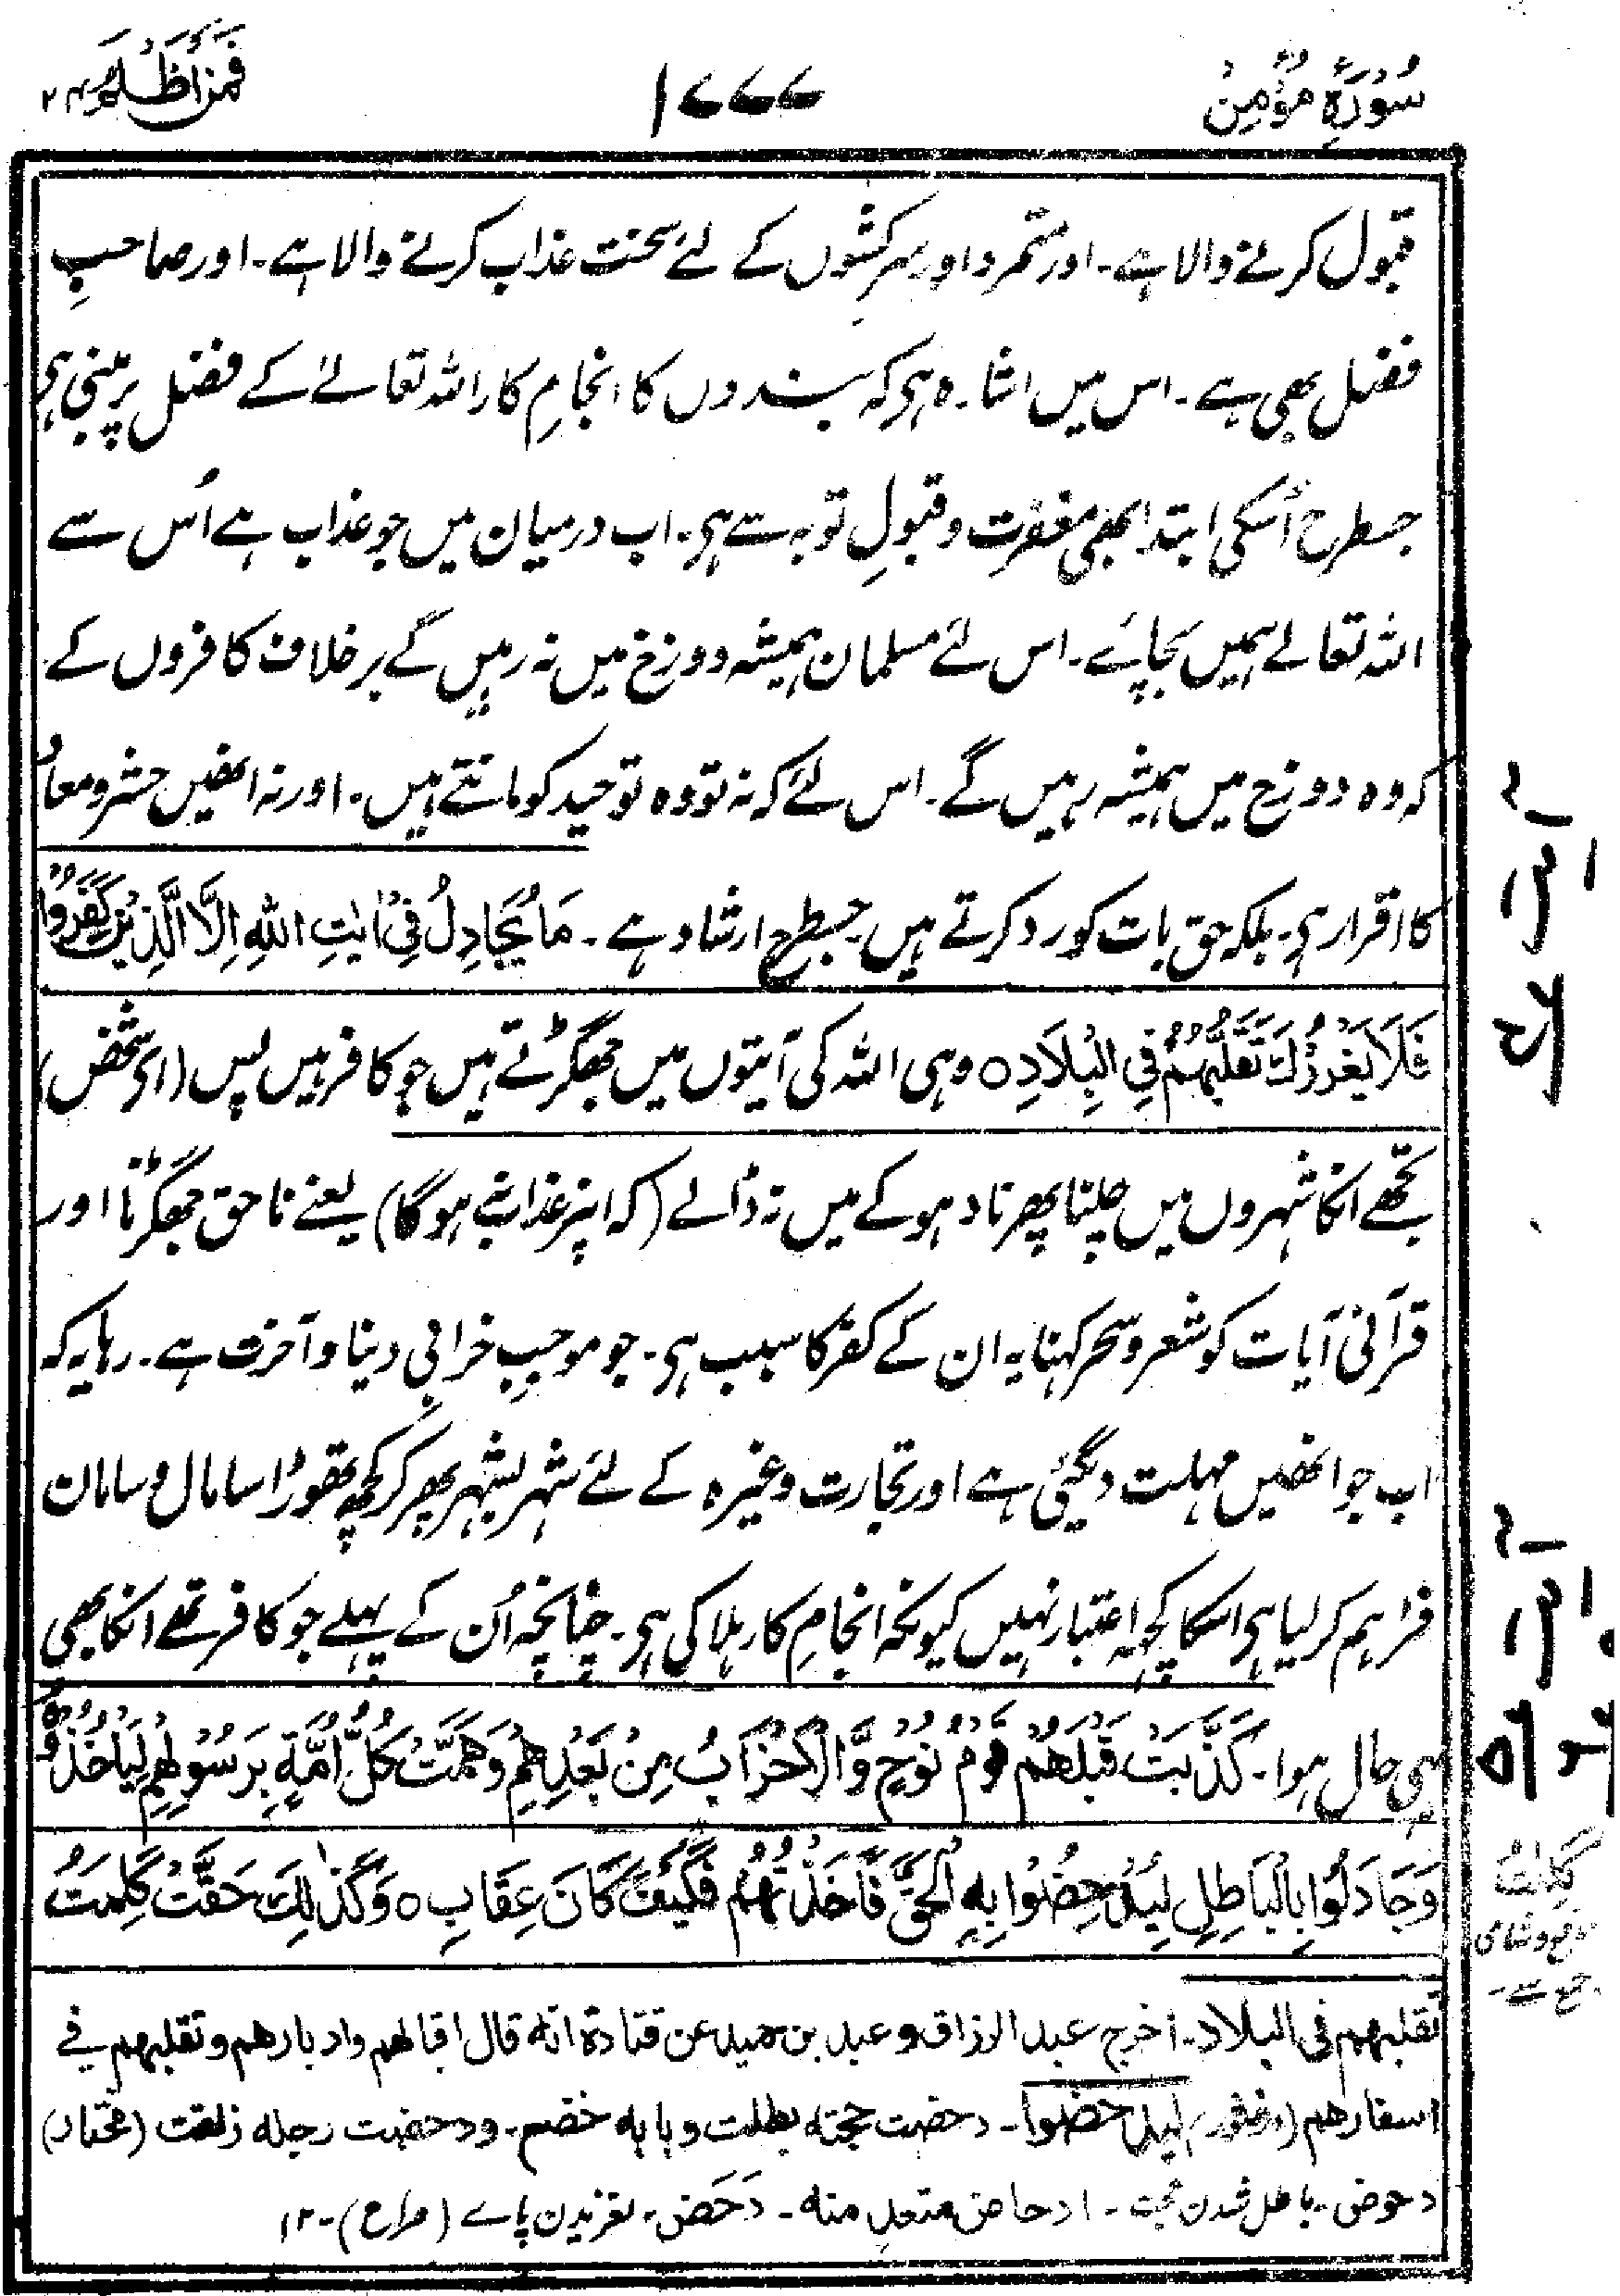 سُوْرَۃُ مُؤْمِنْ
۱۷۷۷
فَمَنْ اَظْلَمُ ۲۴
قبول کرنے والا ہے۔ اور متمرد اور سرکشوں کے لئے سخت عذاب کرنے والا ہے۔ اور صاحبِ
فضل بھی ہے۔ اس میں اشارہ ہی کہ بندوں کا انجامِ کار اللہ تعالےٰ کے فضل پر مبنی ہی
جسطرح اُسکی ابتدا بھی مغفرت و قبولِ توبہ سے ہی۔ اب درمیان میں جو عذاب ہے اُس سے
اللہ تعالےٰ ہمیں بچائے۔ اس لئے مسلمان ہمیشہ دوزخ میں نہ رہیں گے برخلاف کافروں کے
کہ وہ دوزخ میں ہمیشہ رہیں گے۔ اس لئے کہ نہ تو وہ توحید کو مانتے ہیں۔ اور نہ انھیں حشر و معاد
کا اقرار ہی۔ بلکہ حق بات کو رد کرتے ہیں جسطرح ارشاد ہے۔ مَا یُجَادِلُ فِیْٓ اٰیٰتِ اللہِ اِلَّا الَّذِیْنَ کَفَرُوْا
فَلَا یَغْرُرْکَ تَقَلُّبُهُمْ فِی الْبِلَادِ ○ وہی اللہ کی آیتوں میں جھگڑتے ہیں جو کافر ہیں پس (ای شخص)
تجھے انکا شہروں میں چلنا پھرنا دھوکے میں نہ ڈالے (کہ انپر عذاب نہ ہوگا) یعنے ناحق جھگڑنا اور
قرآنی آیات کو شعر و سحر کہنا یہ ان کے کفر کا سبب ہی۔ جو موجبِ خرابیِ دینا و آخرت ہے۔ رہا یہ کہ
اب جو انھیں مہلت دیگئی ہے اور تجارت وغیرہ کے لئے شہر بشہر پھر کر کچھ تھوڑا سا مال و سامان
فراہم کر لیا ہی اسکا کچھ اعتبار نہیں کیونکہ انجامِ کار ہلاکی ہی۔ چنانچہ اُن کے پہلے جو کافر تھے انکا بھی
یہی حال ہوا۔ کَذَّبَتْ قَبْلَهُمْ قَوْمُ نُوْحٍ وَّالْاَحْزَابُ مِنْۢ بَعْدِهِمْ وَهَمَّتْ کُلُّ اُمَّةٍۭ بِرَسُوْلِهِمْ لِیَاْخُذُوْهُ
وَجَادَلُوْا بِالْبَاطِلِ لِیُدْحِضُوْا بِهِ الْحَقَّ فَاَخَذْتُهُمْ فَکَیْفَ کَانَ عِقَابِ ○ وَکَذٰلِكَ حَقَّتْ کَلِمَتُ
تقلبهم فی البلاد۔ اخرج عبد الرزاق و عبد بن حمید عن قتادة انه قال اقبالهم وادبارهم وتقلبهم فی
اسفارهم (درمنثور) لیدحضوا۔ دحضت حجته بطلت وبابه خضع۔ ودحضت رجله زلقت (مختار)
دحوض۔ باطل شدن حجت۔ ادحاض متعدی منه۔ دَحَض۔ لغزیدن پاے (صراح)۔ ۱۲